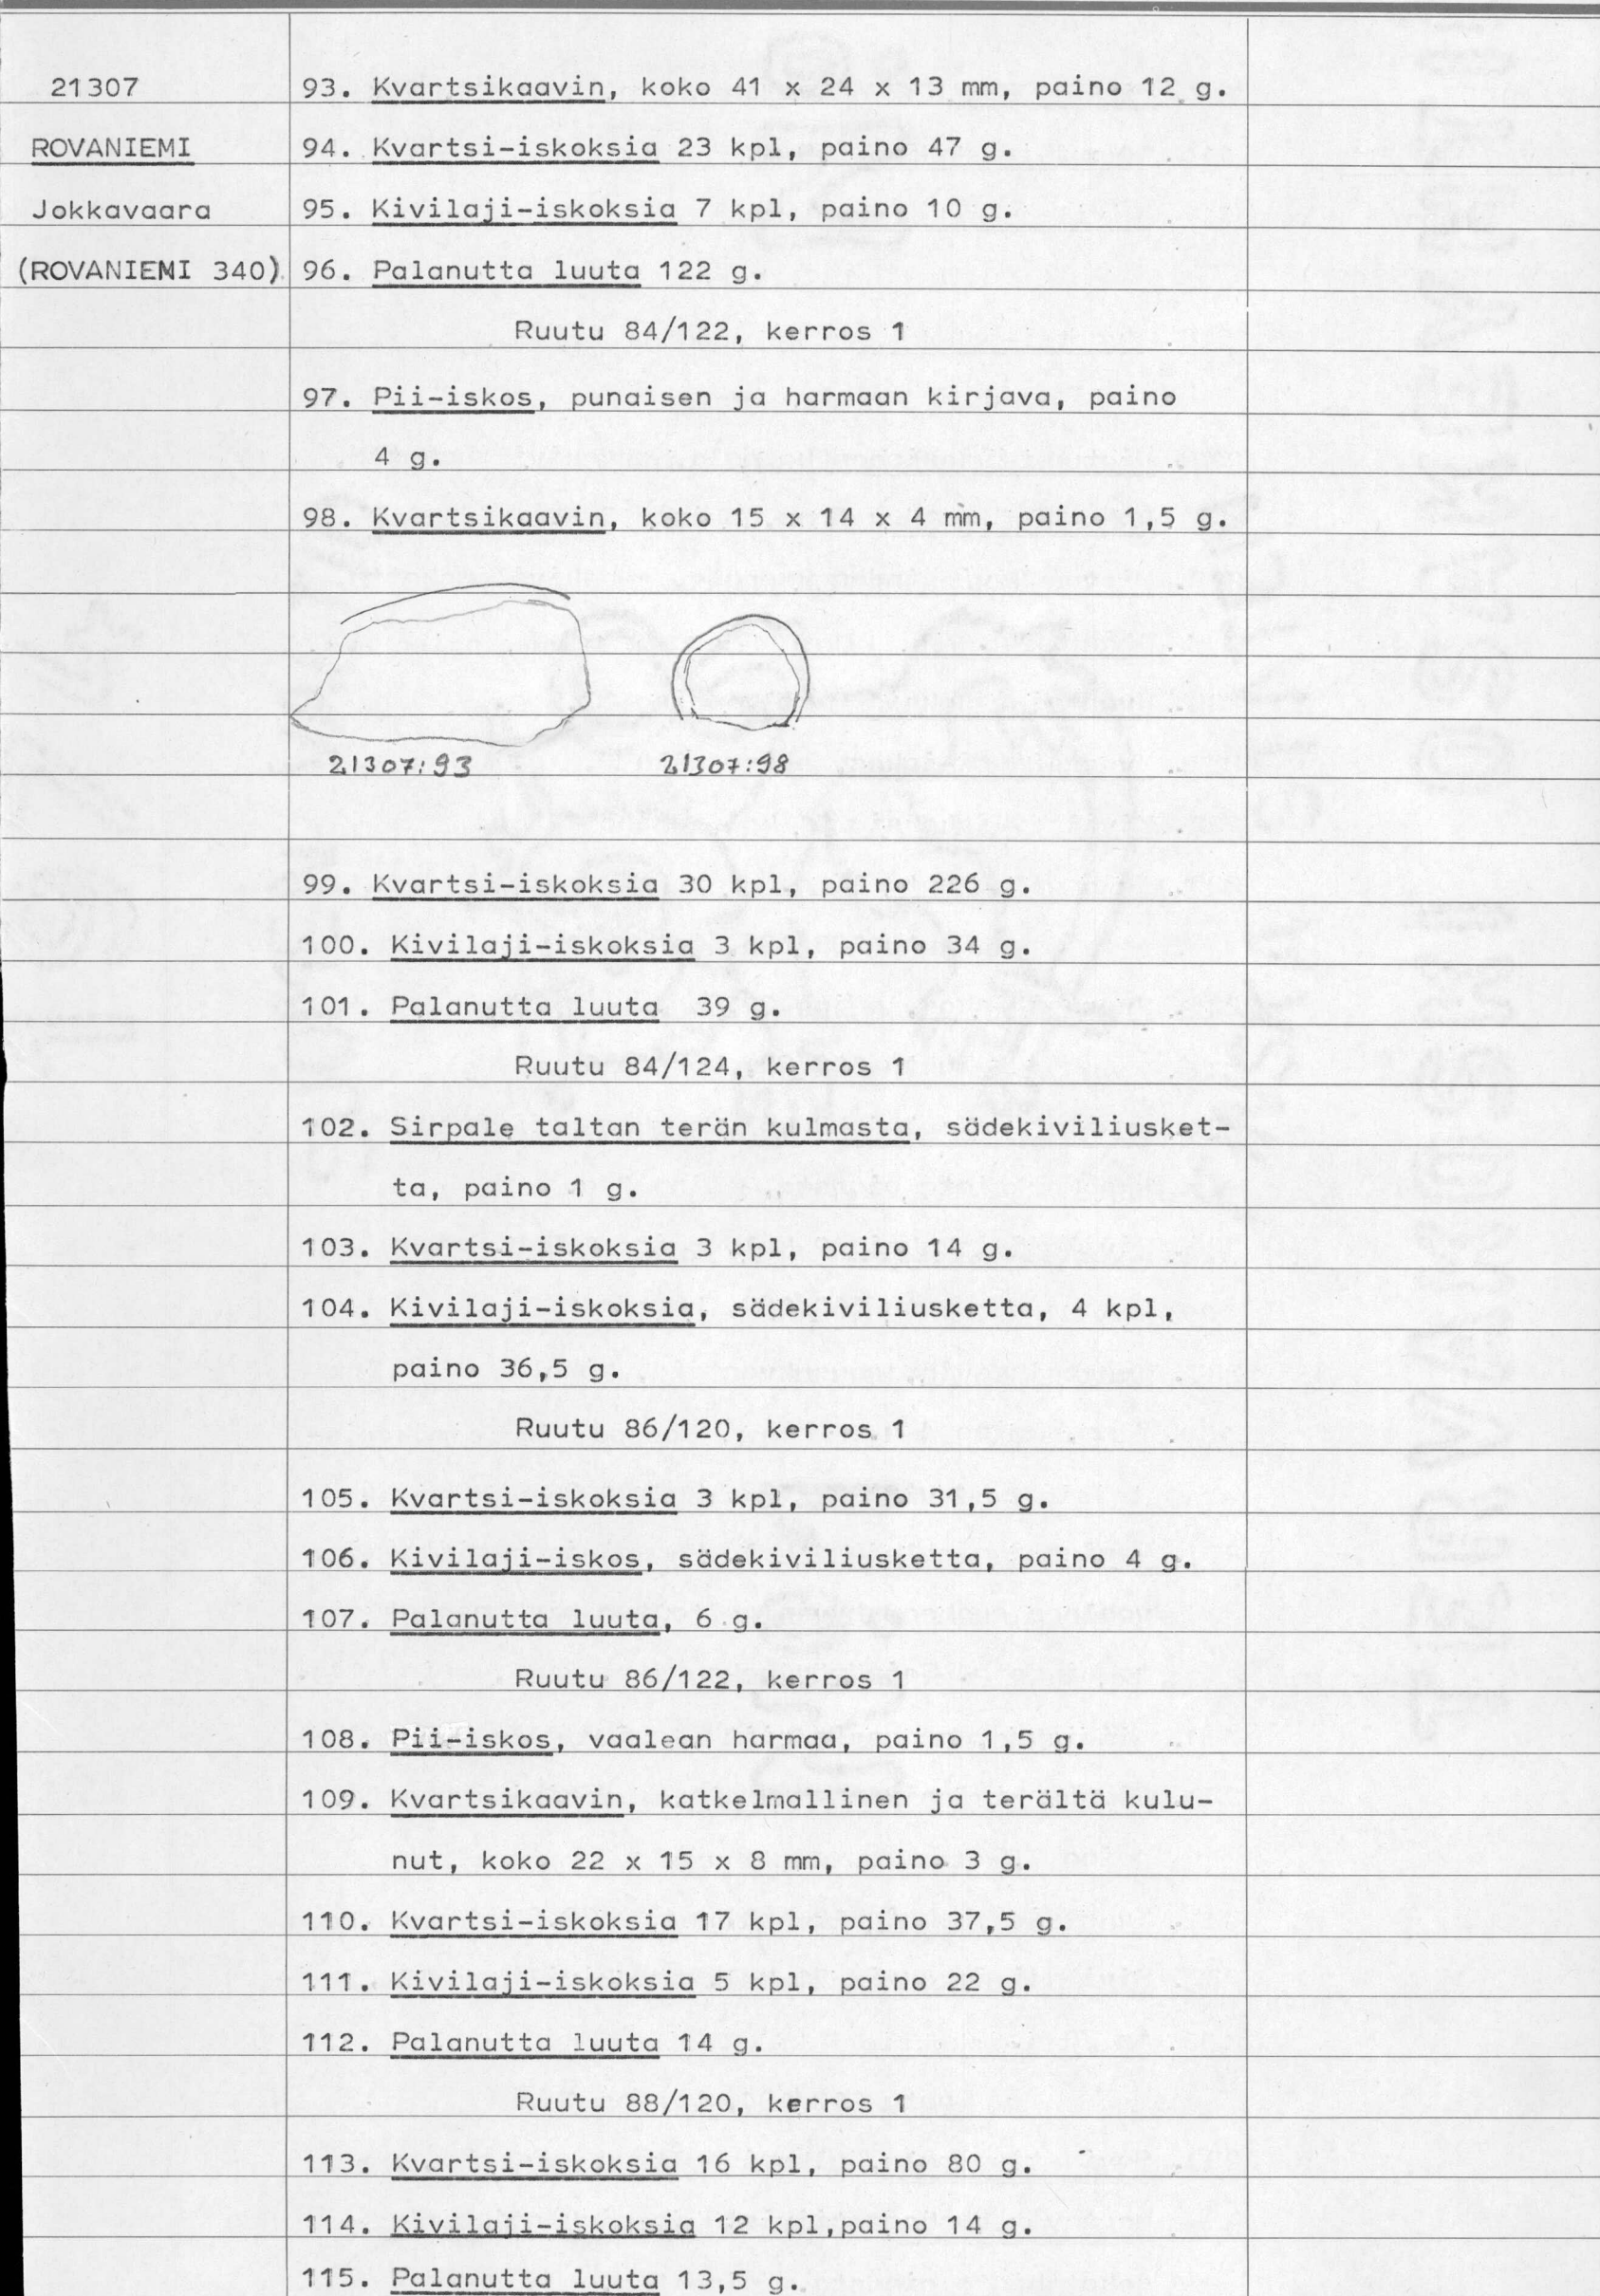 21307
ROVANIEMI
Jokkavaara
(ROVANIEMI 340)
93. Kvartsikaavin, koko 41 x 24 x 13 mm, paino 12 g.
94. Kvartsi-iskoksia 23 kpl, paino 47 g.
95. Kivilaji-iskoksia 7 kpl, paino 10 g.
96. Palanutta luuta 122 g.
Ruutu 84/122, kerros 1
97. Pii-iskos, punaisen ja harmaan kirjava, paino
4 g.
98. Kvartsikaavin, koko 15 x 14 x 4 mm, paino 1,5 g.
21307:93
21307:98
99. Kvartsi-iskoksia 30 kpl, paino 226 g.
100. Kivilaji-iskoksia 3 kpl, paino 34 g.
101. Palanutta luuta 39 g.
Ruutu 84/124, kerros 1
102. Sirpale taltan terän kulmasta, sädekiviliusket-
ta, paino 1 g.
103. Kvartsi-iskoksia 3 kpl, paino 14 g.
104. Kivilaji-iskoksia, sädekiviliusketta, 4 kpl,
paino 36,5 g.
Ruutu 86/120, kerros 1
105. Kvartsi-iskoksia 3 kpl, paino 31,5 g.
106. Kivilaji-iskos, sädekiviliusketta, paino 4 g.
107. Palanutta luuta, 6 g.
Ruutu 86/122, kerros 1
108. Pii-iskos, vaalean harmaa, paino 1,5 g.
109. Kvartsikaavin, katkelmallinen ja terältä kulu-
nut, koko 22 x 15 x 8 mm, paino 3 g.
110. Kvartsi-iskoksia 17 kpl, paino 37,5 g.
111. Kivilaji-iskoksia 5 kpl, paino 22 g.
112. Palanutta luuta 14 g.
Ruutu 88/120, kerros 1
113. Kvartsi-iskoksia 16 kpl, paino 80 g.
114. Kivilaji-iskoksia 12 kpl,paino 14 g.
115. Palanutta luuta 13,5 g.